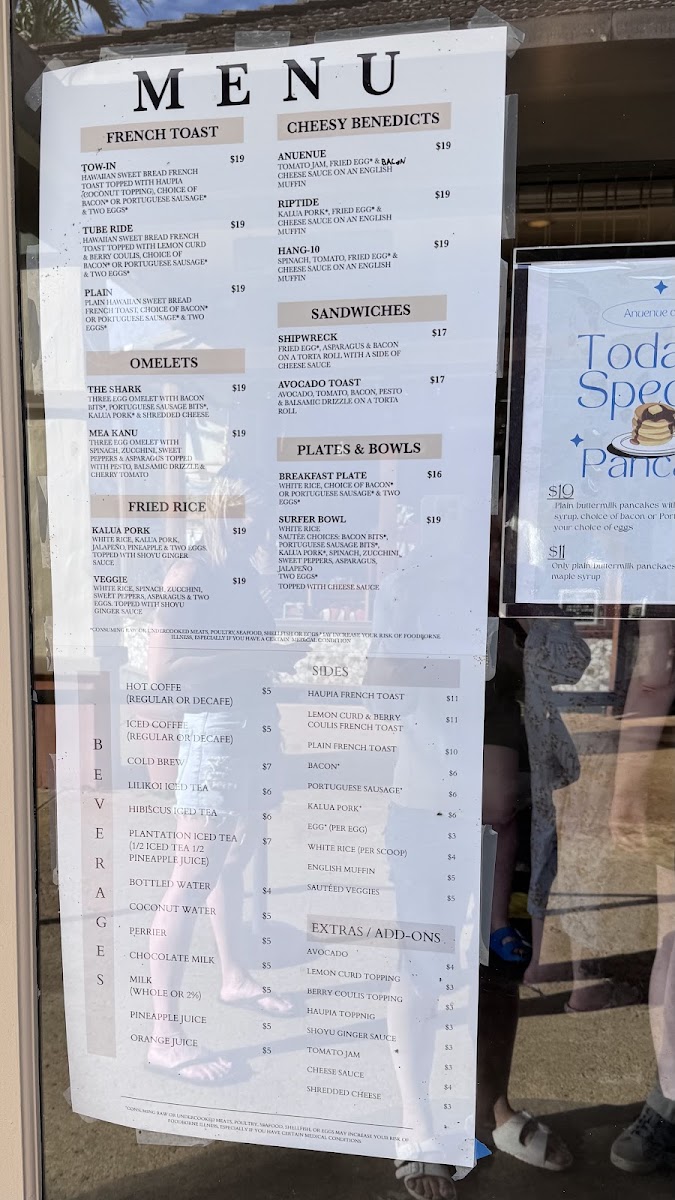 MENU
FRENCH TOAST
TOW-IN $19
HAWAIIAN SWEET BREAD FRENCH
TOAST TOPPED WITH HAUPIA
(COCONUT TOPPING), CHOICE OF
BACON* OR PORTUGUESE SAUSAGE*
& TWO EGGS*
TUBE RIDE $19
HAWAIIAN SWEET BREAD FRENCH
TOAST TOPPED WITH LEMON CURD
& BERRY COULIS, CHOICE OF
BACON* OR PORTUGUESE SAUSAGE*
& TWO EGGS*
PLAIN $19
PLAIN HAWAIIAN SWEET BREAD
FRENCH TOAST, CHOICE OF BACON*
OR PORTUGUESE SAUSAGE* & TWO
EGGS*
OMELETS
THE SHARK $19
THREE EGG OMELET WITH BACON
BITS*, PORTUGUESE SAUSAGE BITS*,
KALUA PORK* & SHREDDED CHEESE
MEA KANU $19
THREE EGG OMELET WITH
SPINACH, ZUCCHINI, SWEET
PEPPERS & ASPARAGUS TOPPED
WITH PESTO, BALSAMIC DRIZZLE &
CHERRY TOMATO
FRIED RICE
KALUA PORK $19
WHITE RICE, KALUA PORK,
JALAPEÑO, PINEAPPLE & TWO EGGS.
TOPPED WTH SHOYU GINGER
SAUCE
VEGGIE $19
WHITE RICE, SPINACH, ZUCCHINI,
SWEET PEPPERS, ASPARAGUS & TWO
EGGS. TOPPED WITH SHOYU
GINGER SAUCE
CHEESY BENEDICTS
ANUENUE $19
TOMATO JAM, FRIED EGG* & BACON
CHEESE SAUCE ON AN ENGLISH
MUFFIN
RIPTIDE $19
KALUA PORK*, FRIED EGG* &
CHEESE SAUCE ON AN ENGLISH
MUFFIN
HANG-10 $19
SPINACH, TOMATO, FRIED EGG* &
CHEESE SAUCE ON AN ENGLISH
MUFFIN
SANDWICHES
SHIPWRECK $17
FRIED EGG*, ASPARAGUS & BACON
ON A TORTA ROLL WITH A SIDE OF
CHEESE SAUCE
AVOCADO TOAST $17
AVOCADO, TOMATO, BACON, PESTO
& BALSAMIC DRIZZLE ON A TORTA
ROLL
PLATES & BOWLS
BREAKFAST PLATE $16
WHITE RICE, CHOICE OF BACON*
OR PORTUGUESE SAUSAGE* & TWO
EGGS*
SURFER BOWL $19
WHITE RICE
SAUTÉE CHOICES: BACON BITS*,
PORTUGUESE SAUSAGE BITS*,
KALUA PORK*, SPINACH, ZUCCHINI,
SWEET PEPPERS, ASPARAGUS,
JALAPEÑO
TWO EGGS*
TOPPED WITH CHEESE SAUCE
*CONSUMING RAW OR UNDERCOOKED MEATS, POULTRY, SEAFOOD, SHELLFISH OR EGGS MAY INCREASE YOUR RISK OF FOODBORNE
ILLNESS, ESPECIALLY IF YOU HAVE A CERTAIN MEDICAL CONDITION
BEVERAGES
HOT COFFE $5
(REGULAR OR DECAFE)
ICED COFFEE $5
(REGULAR OR DECAFE)
COLD BREW $7
LILIKOI ICED TEA $6
HIBISCUS ICED TEA $6
PLANTATION ICED TEA $7
(1/2 ICED TEA 1/2
PINEAPPLE JUICE)
BOTTLED WATER $4
COCONUT WATER $5
PERRIER $5
CHOCOLATE MILK $5
MILK $5
(WHOLE OR 2%)
PINEAPPLE JUICE $5
ORANGE JUICE $5
SIDES
HAUPIA FRENCH TOAST $11
LEMON CURD & BERRY $11
COULIS FRENCH TOAST
PLAIN FRENCH TOAST $10
BACON* $6
PORTUGUESE SAUSAGE* $6
KALUA PORK* $6
EGG* (PER EGG) $3
WHITE RICE (PER SCOOP) $4
ENGLISH MUFFIN $5
SAUTÉED VEGGIES $5
EXTRAS / ADD-ONS
AVOCADO $4
LEMON CURD TOPPING $3
BERRY COULIS TOPPING $3
HAUPIA TOPPNIG $3
SHOYU GINGER SAUCE $3
TOMATO JAM $3
CHEESE SAUCE $4
SHREDDED CHEESE $3
*CONSUMING RAW OR UNDERCOOKED MEATS, POULTRY, SEAFOOD, SHELLFISH, OR EGGS MAY INCREASE YOUR RISK OF
FOODBORNE ILLNESS, ESPECIALLY IF YOU HAVE CERTAIN MEDICAL CONDITIONS
Anuenue
Toda
Spec
Panca
$19
Plain buttermilk pancakes wit
syrup, choice of bacon or Por
your choice of eggs
$11
Only plain buttermilk pancakes
maple syrup